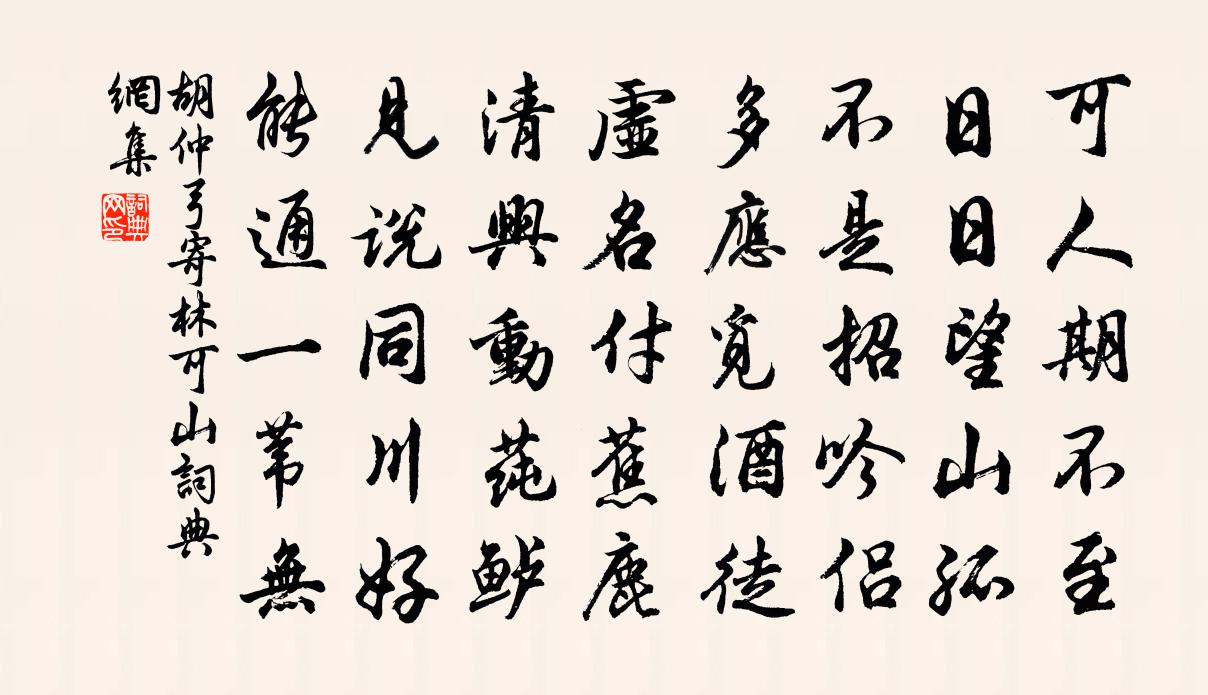 可人期不至
日日望山孤
不是招吟侣
多應覓酒徒
虛名付蕉鹿
清興動莼鲈
見説同川好
能通一苇無
胡仲弓寄林可山詞典
網集
詞典网印